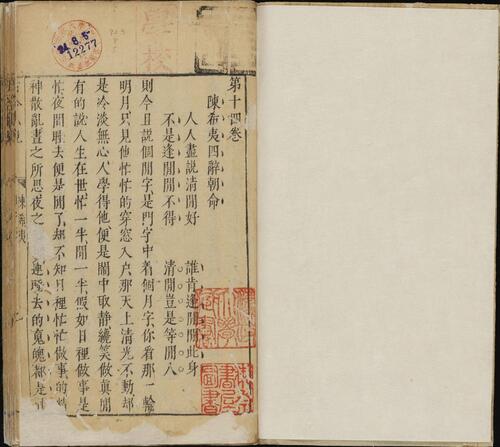 第十四卷
陳希夷四辭朝命
人人盡說清閒好 誰肯逢閒閒此身
不是逢閒閒不得 清閒豈是等閒人
則今且說個閒字是門字中着個月字你看那一輪
明月只見他忙忙的穿窓入戶那天上清光不動却
是冷淡無心人學得他便是鬧中取靜纔笑做眞閒
有的說人生在世忙一半閒一半假如日裡做事是
忙夜間睡去便是閒了却不知日裡忙忙做事的
神散亂晝之所思夜之 連睡去的魂魄都是
陳希夷
學校
24.8.5
12277